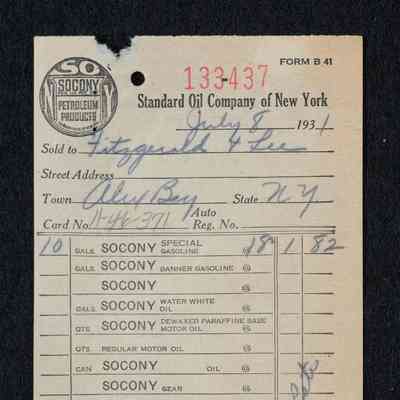 FORM B 41
SO
SOCONY
PETROLEUM
PRODUCTS
133437
Standard Oil Company of New York
July 8 1931
Sold to Fitzgerald & Lee
Street Address
Town Alex Bay State NY
Card No. 11-46-371 Auto Reg. No.
10 GALS. SOCONY SPECIAL GASOLINE @ 18² 1 82
GALS. SOCONY BANNER GASOLINE @
SOCONY
GALS. SOCONY WATER WHITE OIL @
QTS. SOCONY DEWAXED PARAFFINE BASE MOTOR OIL @
QTS. REGULAR MOTOR OIL @
CAN SOCONY OIL @
SOCONY GEAR @